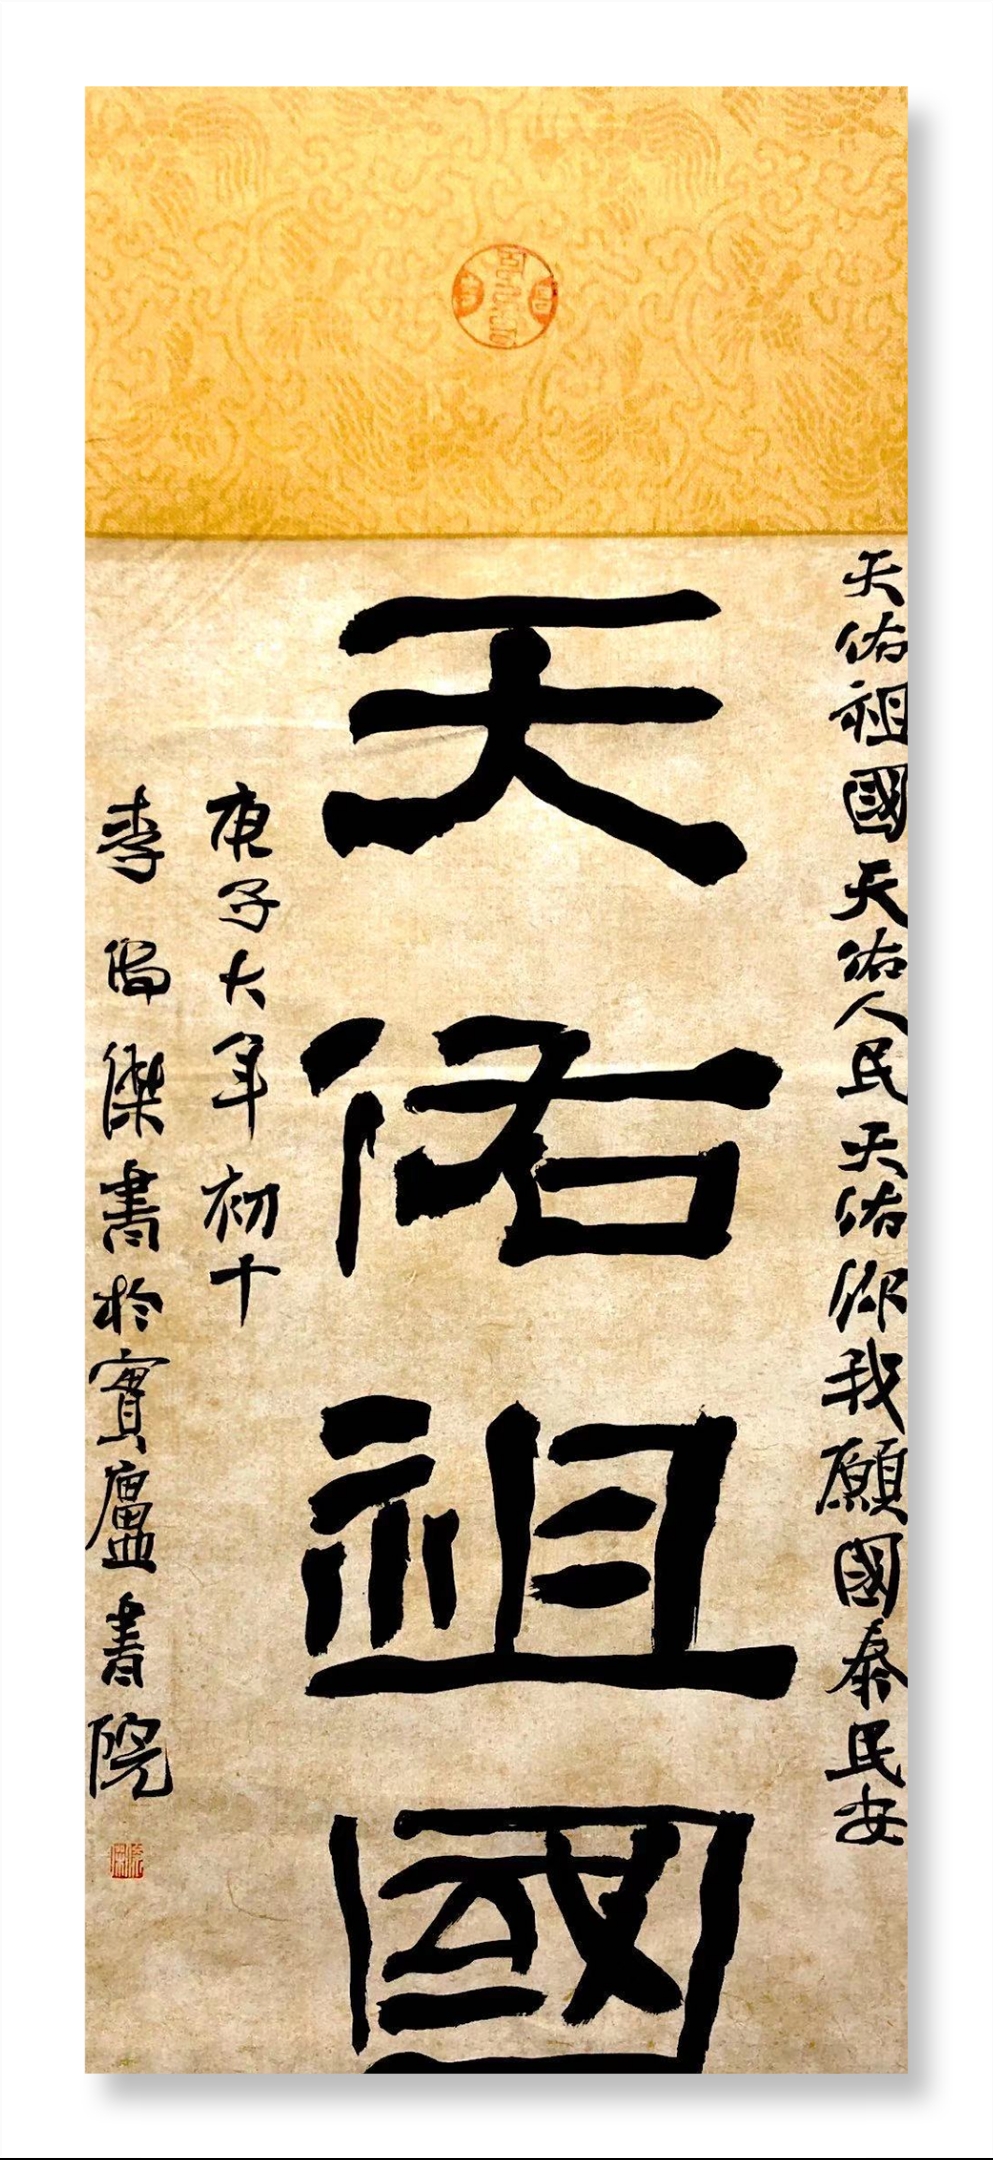 天佑祖國天佑人民天佑你我願國泰民安
天佑祖國
庚子大年初十
李陽傑書於寶廬書院